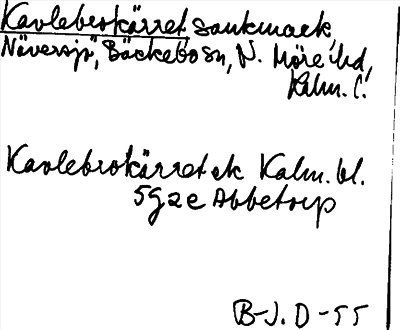 Kavlebrokärret sankmark,
Näversjö, Bäckebo sn, N. Möre hd,
Kalm. l.
Kavlebrokärret ek Kalm. bl.
5g2e Abbetorp
B-J. D-55